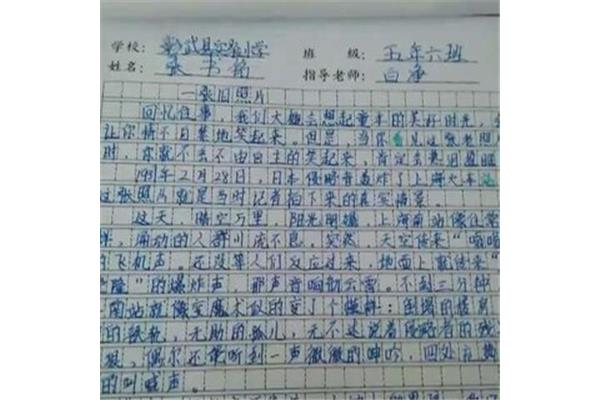 学校：彰武县实验小学 班级：五年六班
姓名：张书铭 指导老师：白净
一张旧照片
回忆往事，我们大概会想起童年的美好时光，
让你情不自禁地笑起来。但是，当你看见这张老照
时，你就不会不由自主的笑起来，肯定会热泪盈眶
1931年2月28日，日本侵略者轰炸了上海火车
这张照片就是当时记者拍下来的真实情景。
这天，晴空万里，阳光明媚，上海南站像往常
样，涌动的人群川流不息。突然，天空传来“嗡嗡
的飞机声。还没等人们反应过来，地面上就传来“
隆”的爆炸声，那声音响彻云霄。不到三分钟
南站就像变魔术似的变了个模样：倒塌的楼房
的铁轨，无助的孤儿，无不述说着侵略者的残
狠，偶尔还能听到一声微微的呻吟，四处立
的叫喊声。